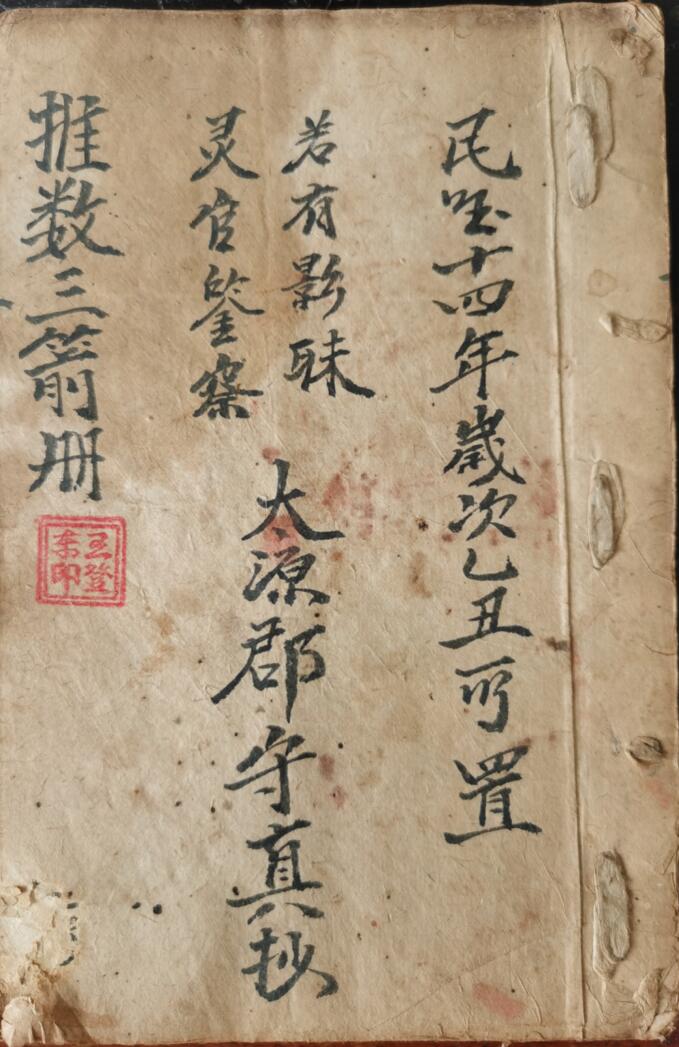 民国十四年歲次乙丑所置
若有影昧
灵官鉴察
太源郡守真抄
推数三箭册
王登
东印